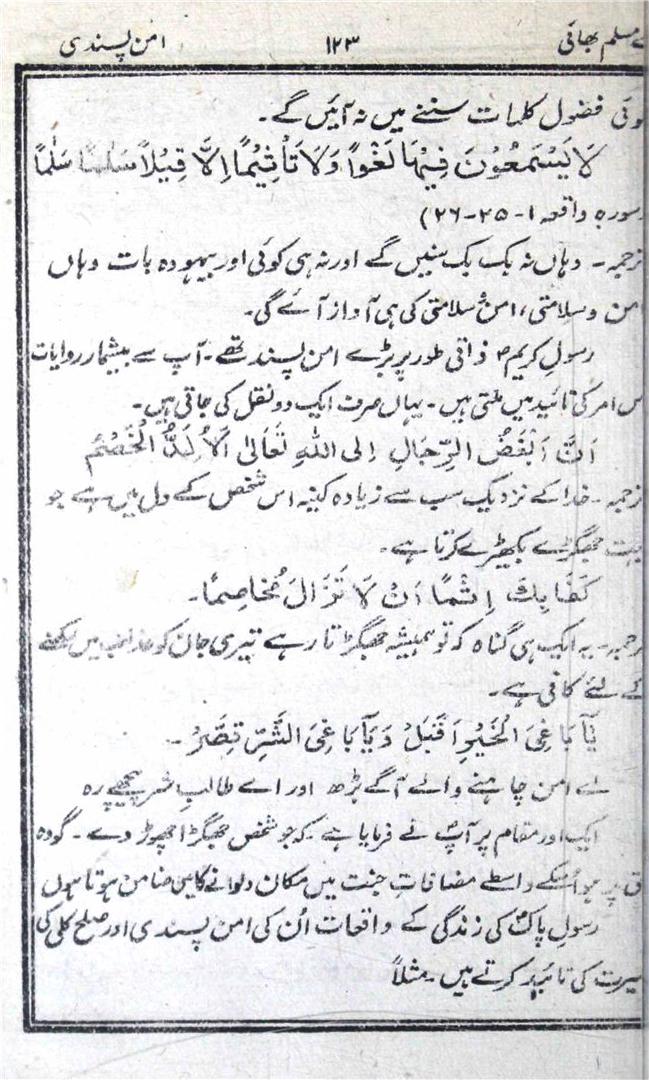 مسلم بھائی ۱۲۳ امن پسندی
کوئی فضول کلمات سننے میں نہ آئیں گے۔
لَا يَسْمَعُوْنَ فِيْهَا لَغْواً وَلَا تَأْثِيْماً اِلَّا قِيْلاً سَلٰماً سَلٰماً
سورہ واقعہ ۱-۲۵-۲۶)
ترجمہ۔ وہاں نہ بک بک سنیں گے اور نہ ہی کوئی اور بیہودہ بات وہاں
امن وسلامتی، امن وسلامتی کی ہی آواز آئے گی۔
رسولِ کریمؐ ذاتی طور پر بڑے امن پسند تھے۔ آپ سے بیشمار روایات
اس امر کی تائید میں ملتی ہیں۔ یہاں صرف ایک دو نقل کی جاتی ہیں۔
اَنَّ اَبْغَضُ الرِّجَالِ اِلی اللهِ تَعَالٰی اَلاَلَدُّ الْخَصْمُ
ترجمہ۔ خدا کے نزدیک سب سے زیادہ کینہ اس شخص کے دل میں ہے جو
بہت جھگڑے بکھیڑے کرتا ہے۔
كَفَا بِكَ اِثْمًا اَنْ لَا تَزَالَ مُخَاصِمًا۔
ترجمہ۔ یہ ایک ہی گناہ کہ تو ہمیشہ جھگڑتا رہے تیری جان کو عذاب میں رکھنے
کے لئے کافی ہے۔
يَآ بَاغِیَ الْخَيْرِ اَقْبَلْ وَيَآ بَاغِیَ الشَّرِّ تَصَرْ۔
اے امن چاہنے والے آگے بڑھ اور اے طالبِ شر پیچھے رہ
ایک اور مقام پر آپؐ نے فرمایا ہے۔ کہ جو شخص جھگڑا چھوڑ دے۔ گو وہ
حق پر ہو اسکے واسطے مضافاتِ جنت میں مکان دلوانے کا میں ضامن ہوتا ہوں
رسولِ پاکؐ کی زندگی کے واقعات اُن کی امن پسندی اور صلح کلی کی
سیرت کی تائید کرتے ہیں۔ مثلاً